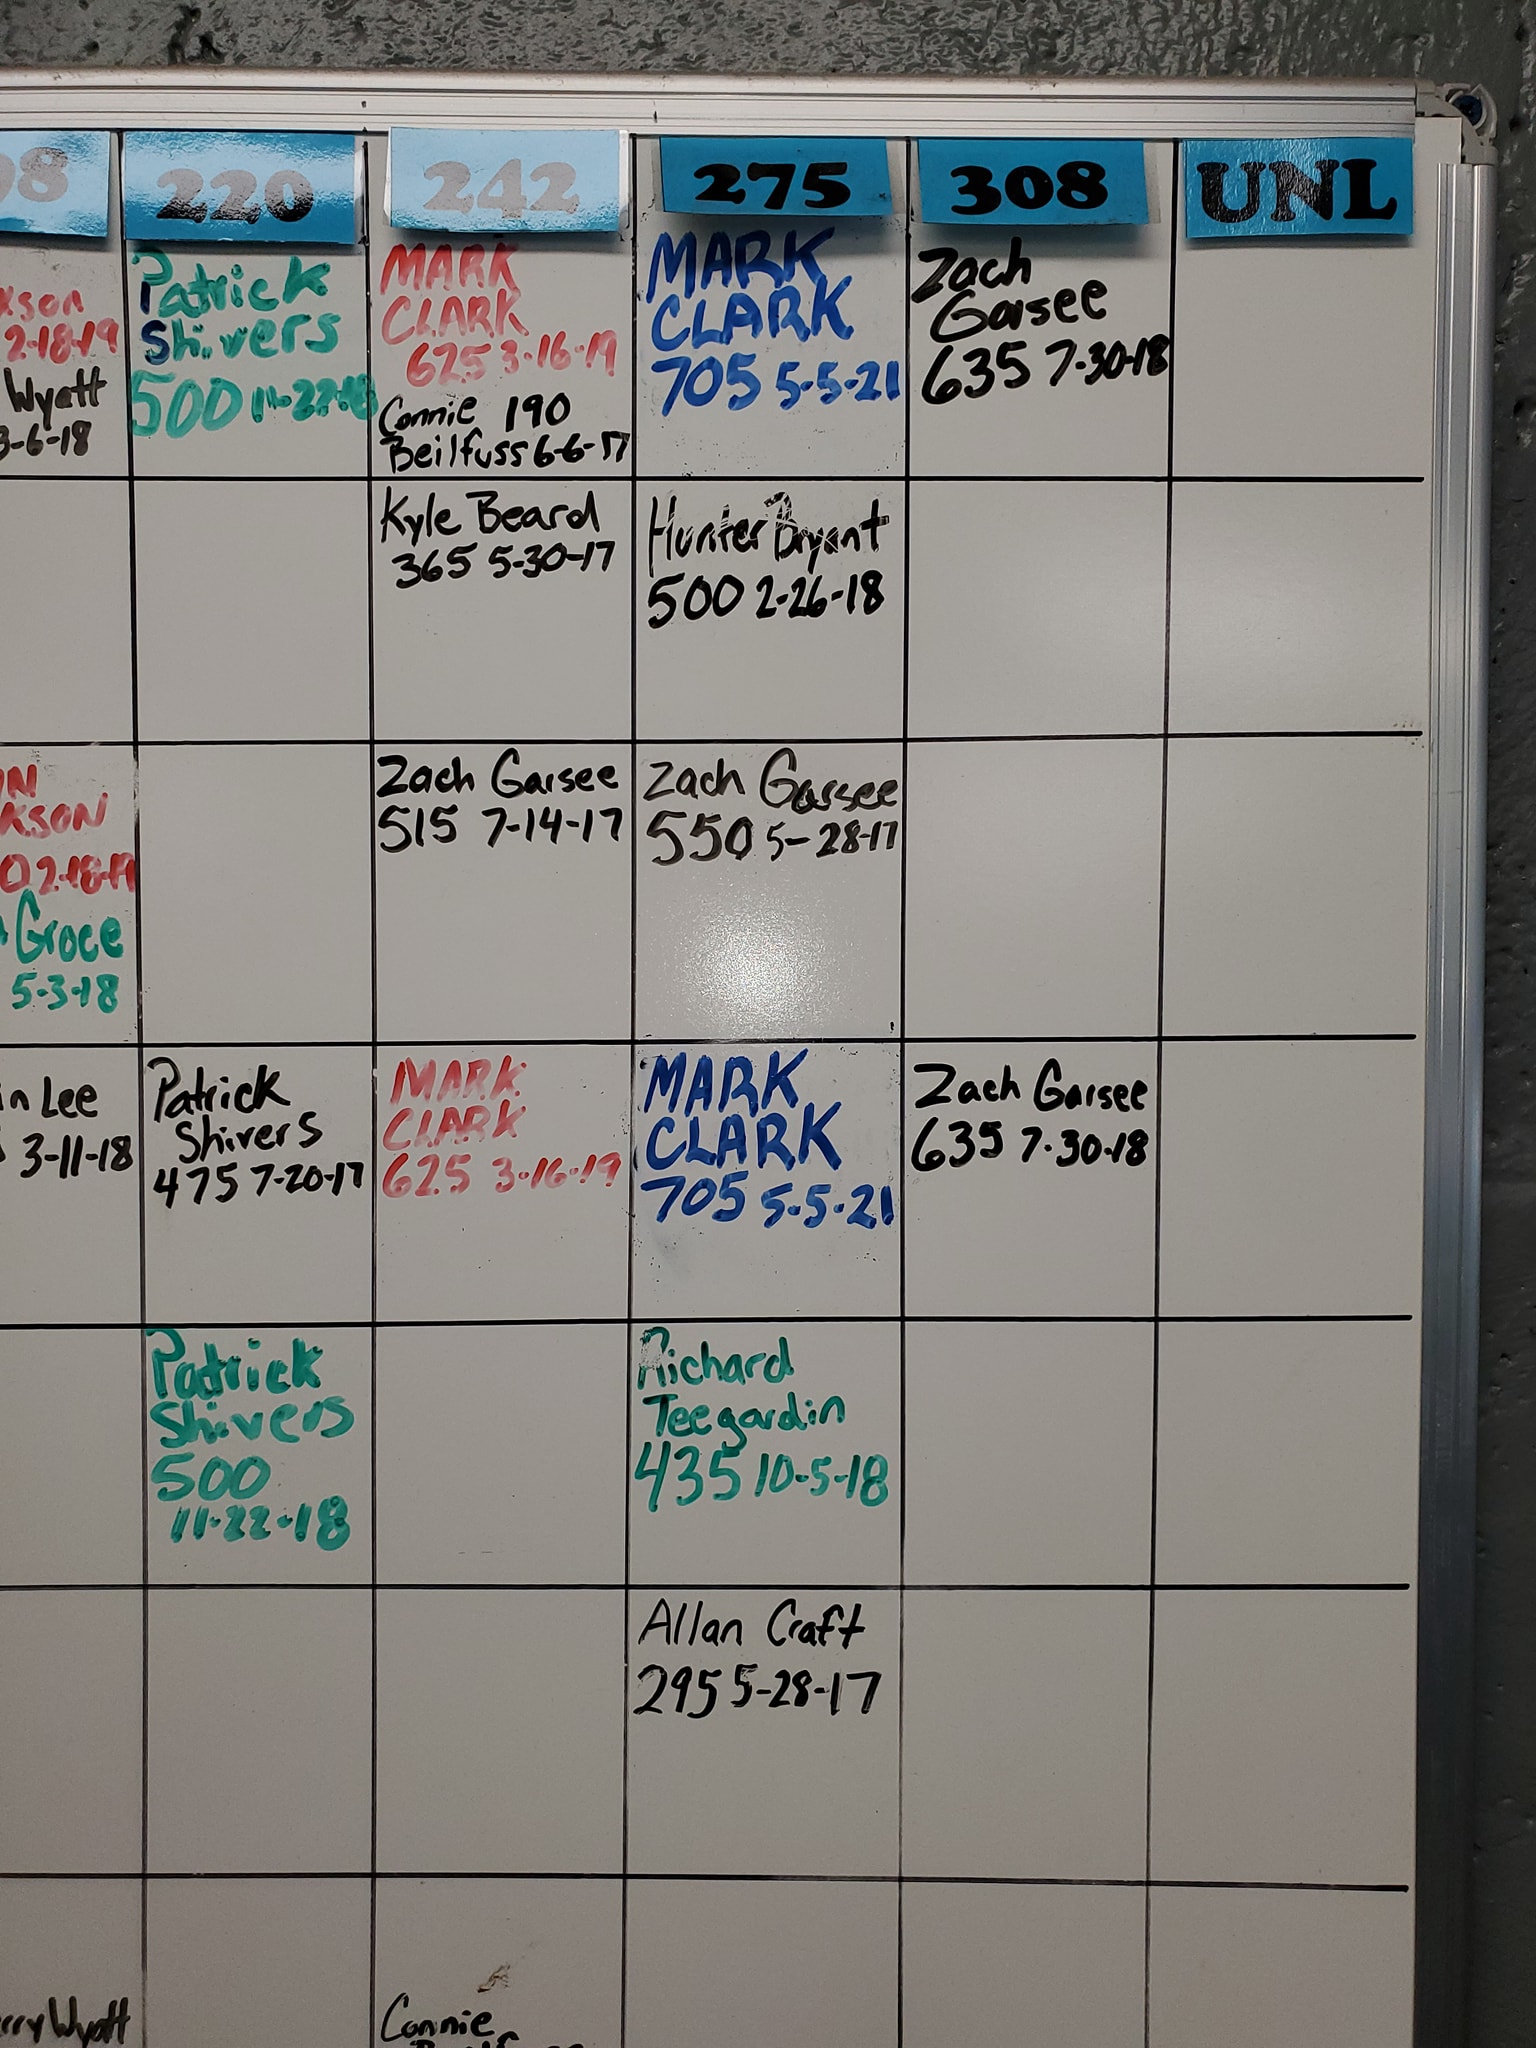 98 220 242 275 308 UNL
kson
2-18-19
Wyatt
3-6-18
Patrick
Shivers
500 11-22-18
MARK
CLARK
625 3-16-19
Connie 190
Beilfuss 6-6-17
MARK
CLARK
705 5-5-21
Zach
Garsee
635 7-30-18
Kyle Beard
365 5-30-17
Hunter Bryant
500 2-26-18
KSON
0 2-18-19
Groce
5-3-18
Zach Garsee
515 7-14-17
Zach Garsee
550 5-28-17
n Lee
3-11-18
Patrick
Shivers
475 7-20-17
MARK
CLARK
625 3-16-19
MARK
CLARK
705 5-5-21
Zach Garsee
635 7-30-18
Patrick
Shivers
500
11-22-18
Richard
Teegardin
435 10-5-18
Allan Craft
295 5-28-17
rry Wyatt
Connie